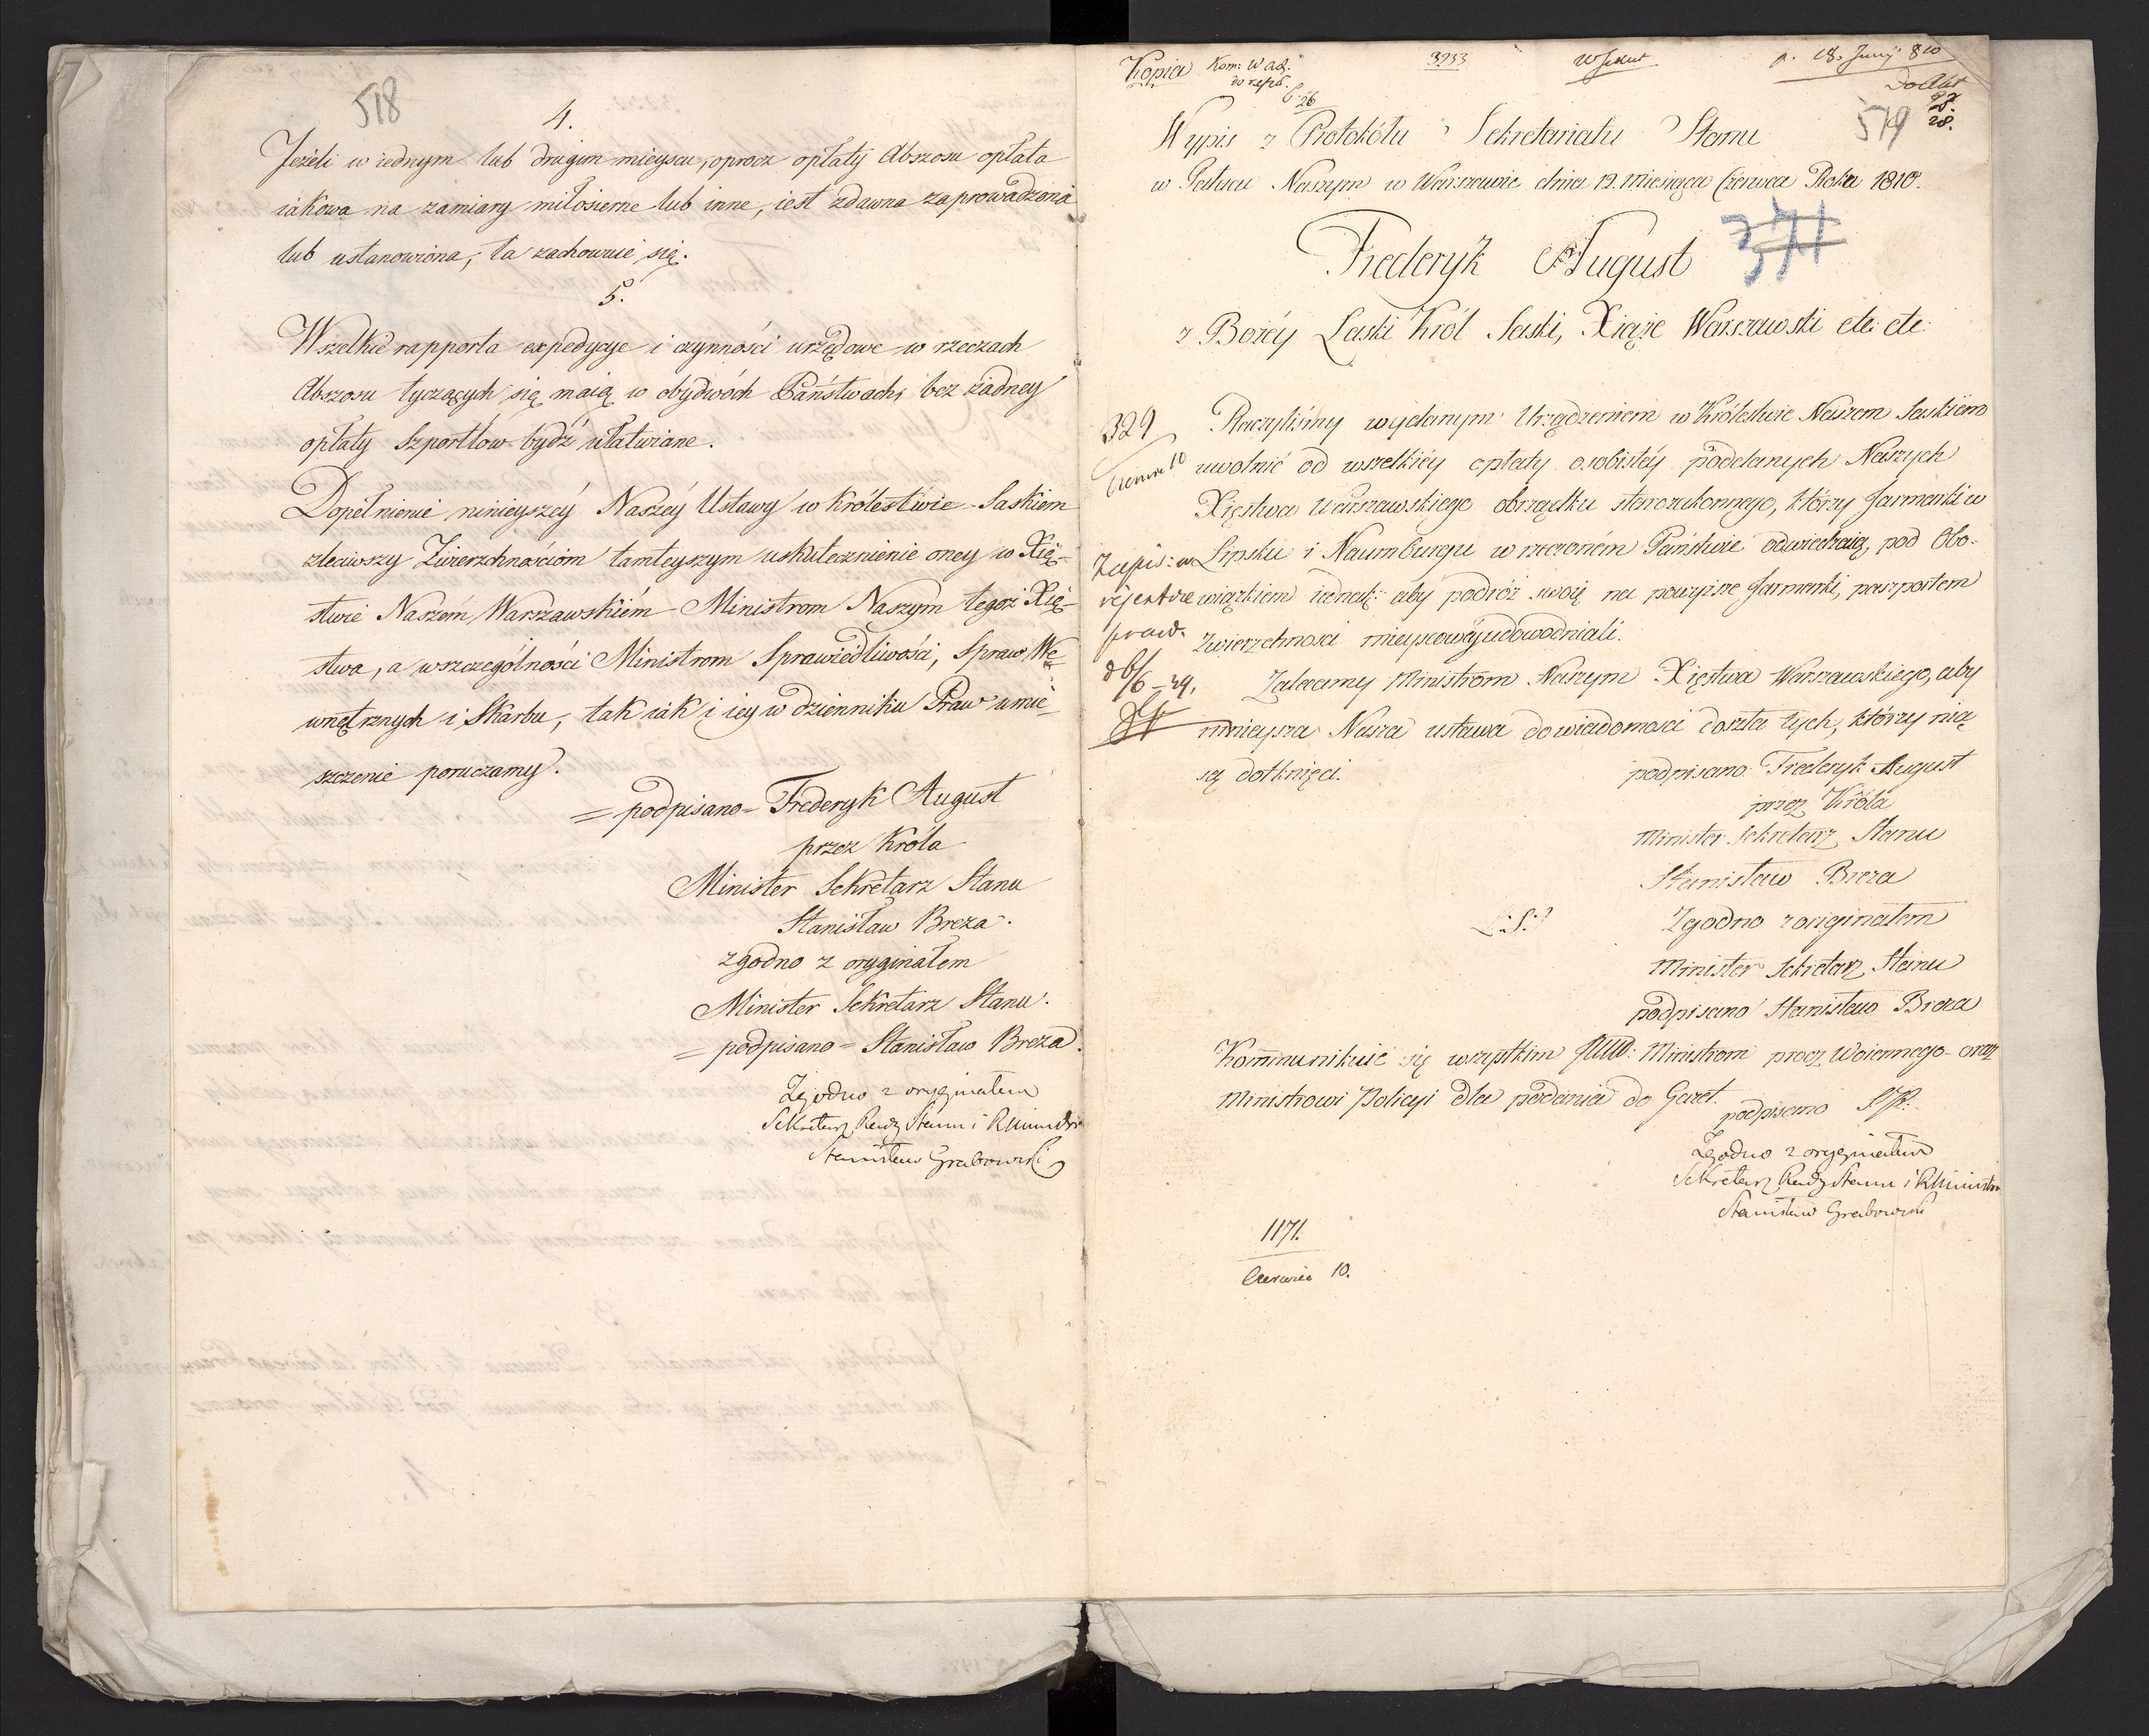 518
4.
Jeżeli w iednym lub drugim mieyscu, oprocz opłaty Abszosu opłata
iakowa na zamiary miłosierne lub inne, iest zdawna zaprowadzona
lub ustanowiona, ta zachowuie się.
5.
Wszelkie rapporta expedycye i czynności urzędowe w rzeczach
Abszosu tyczących się maią w obydwóch Państwach, bez żadney
opłaty Szportlow bydź ułatwiane.
Dopełnienie ninieyszéy Naszéy Ustawy w Królestwie Saskiem
zleciwszy Zwierzchnościom tamteyszym uskutecznienie oney w Xię-
stwie Naszém Warszawskiém Ministrom Naszym tegoż Xię-
stwa, a wszczególności Ministrom Sprawiedliwości, Spraw We-
wnętrznych i Skarbu, tak iak i iey w dzienniku Praw umie-
szczenie poruczamy.
= podpisano = Frederyk August
przez Króla
Minister Sekretarz Stanu
Stanisław Breza.
zgodno z oryginałem
Minister Sekretarz Stanu.
= podpisano = Stanisław Breza.
Zgodno z oryginałem
Sekretarz Rady Stanu i R Ministrów
Stanisław Grabowski
Kopia 3233 p. 18. Juny 810
Do Akt
579
28.
Wypis z Protokółu Sekretariatu Stanu
w Pałacu Naszym w Warszawie dnia 12. Miesiąca Czerwca Roku 1810.
Frederyk August
z Bożéy Łaski Król Saski, Xiąże Warszawski etc: etc:
329
Czerwca 10
Raczyliśmy wydanym Urządzeniem w Królestwie Naszem Saskiem
uwolnić od wszelkiéy opłaty osobistéy poddanych Naszych
Xięstwa Warszawskiego obrządku starozakonnego, którzy Jarmarki w
Lipsku i Naumburgu w rzeczoném Państwie odwiedzaią, pod Obo-
wiązkiem iednak: aby podróż swoię na powyższe Jarmarki, paszportem
Zwierzchności mieyscowéy udowodniali.
Zapis: w
rejestrze
praw.
Zalecamy Ministrom Naszym Xięstwa Warszawskiego, aby
ninieysza Nasza ustawa do wiadomości doszła tych, którzy nią
są dotknięci.
podpisano Frederyk August
przez Króla
Minister Sekretarz Stanu
Stanisław Breza
L: S:
Zgodno z oryginałem
Minister Sekretarz Stanu
podpisano Stanisław Breza
Kommunikuie się wszystkim JWW: Ministrom procz Woiennego oraz
Ministrowi Policyi dla podania do Gazet.
podpisano
Zgodno z oryginałem
Sekretarz Rady Stanu i R Ministrów
Stanisław Grabowski
1171.
Czerwca 10.